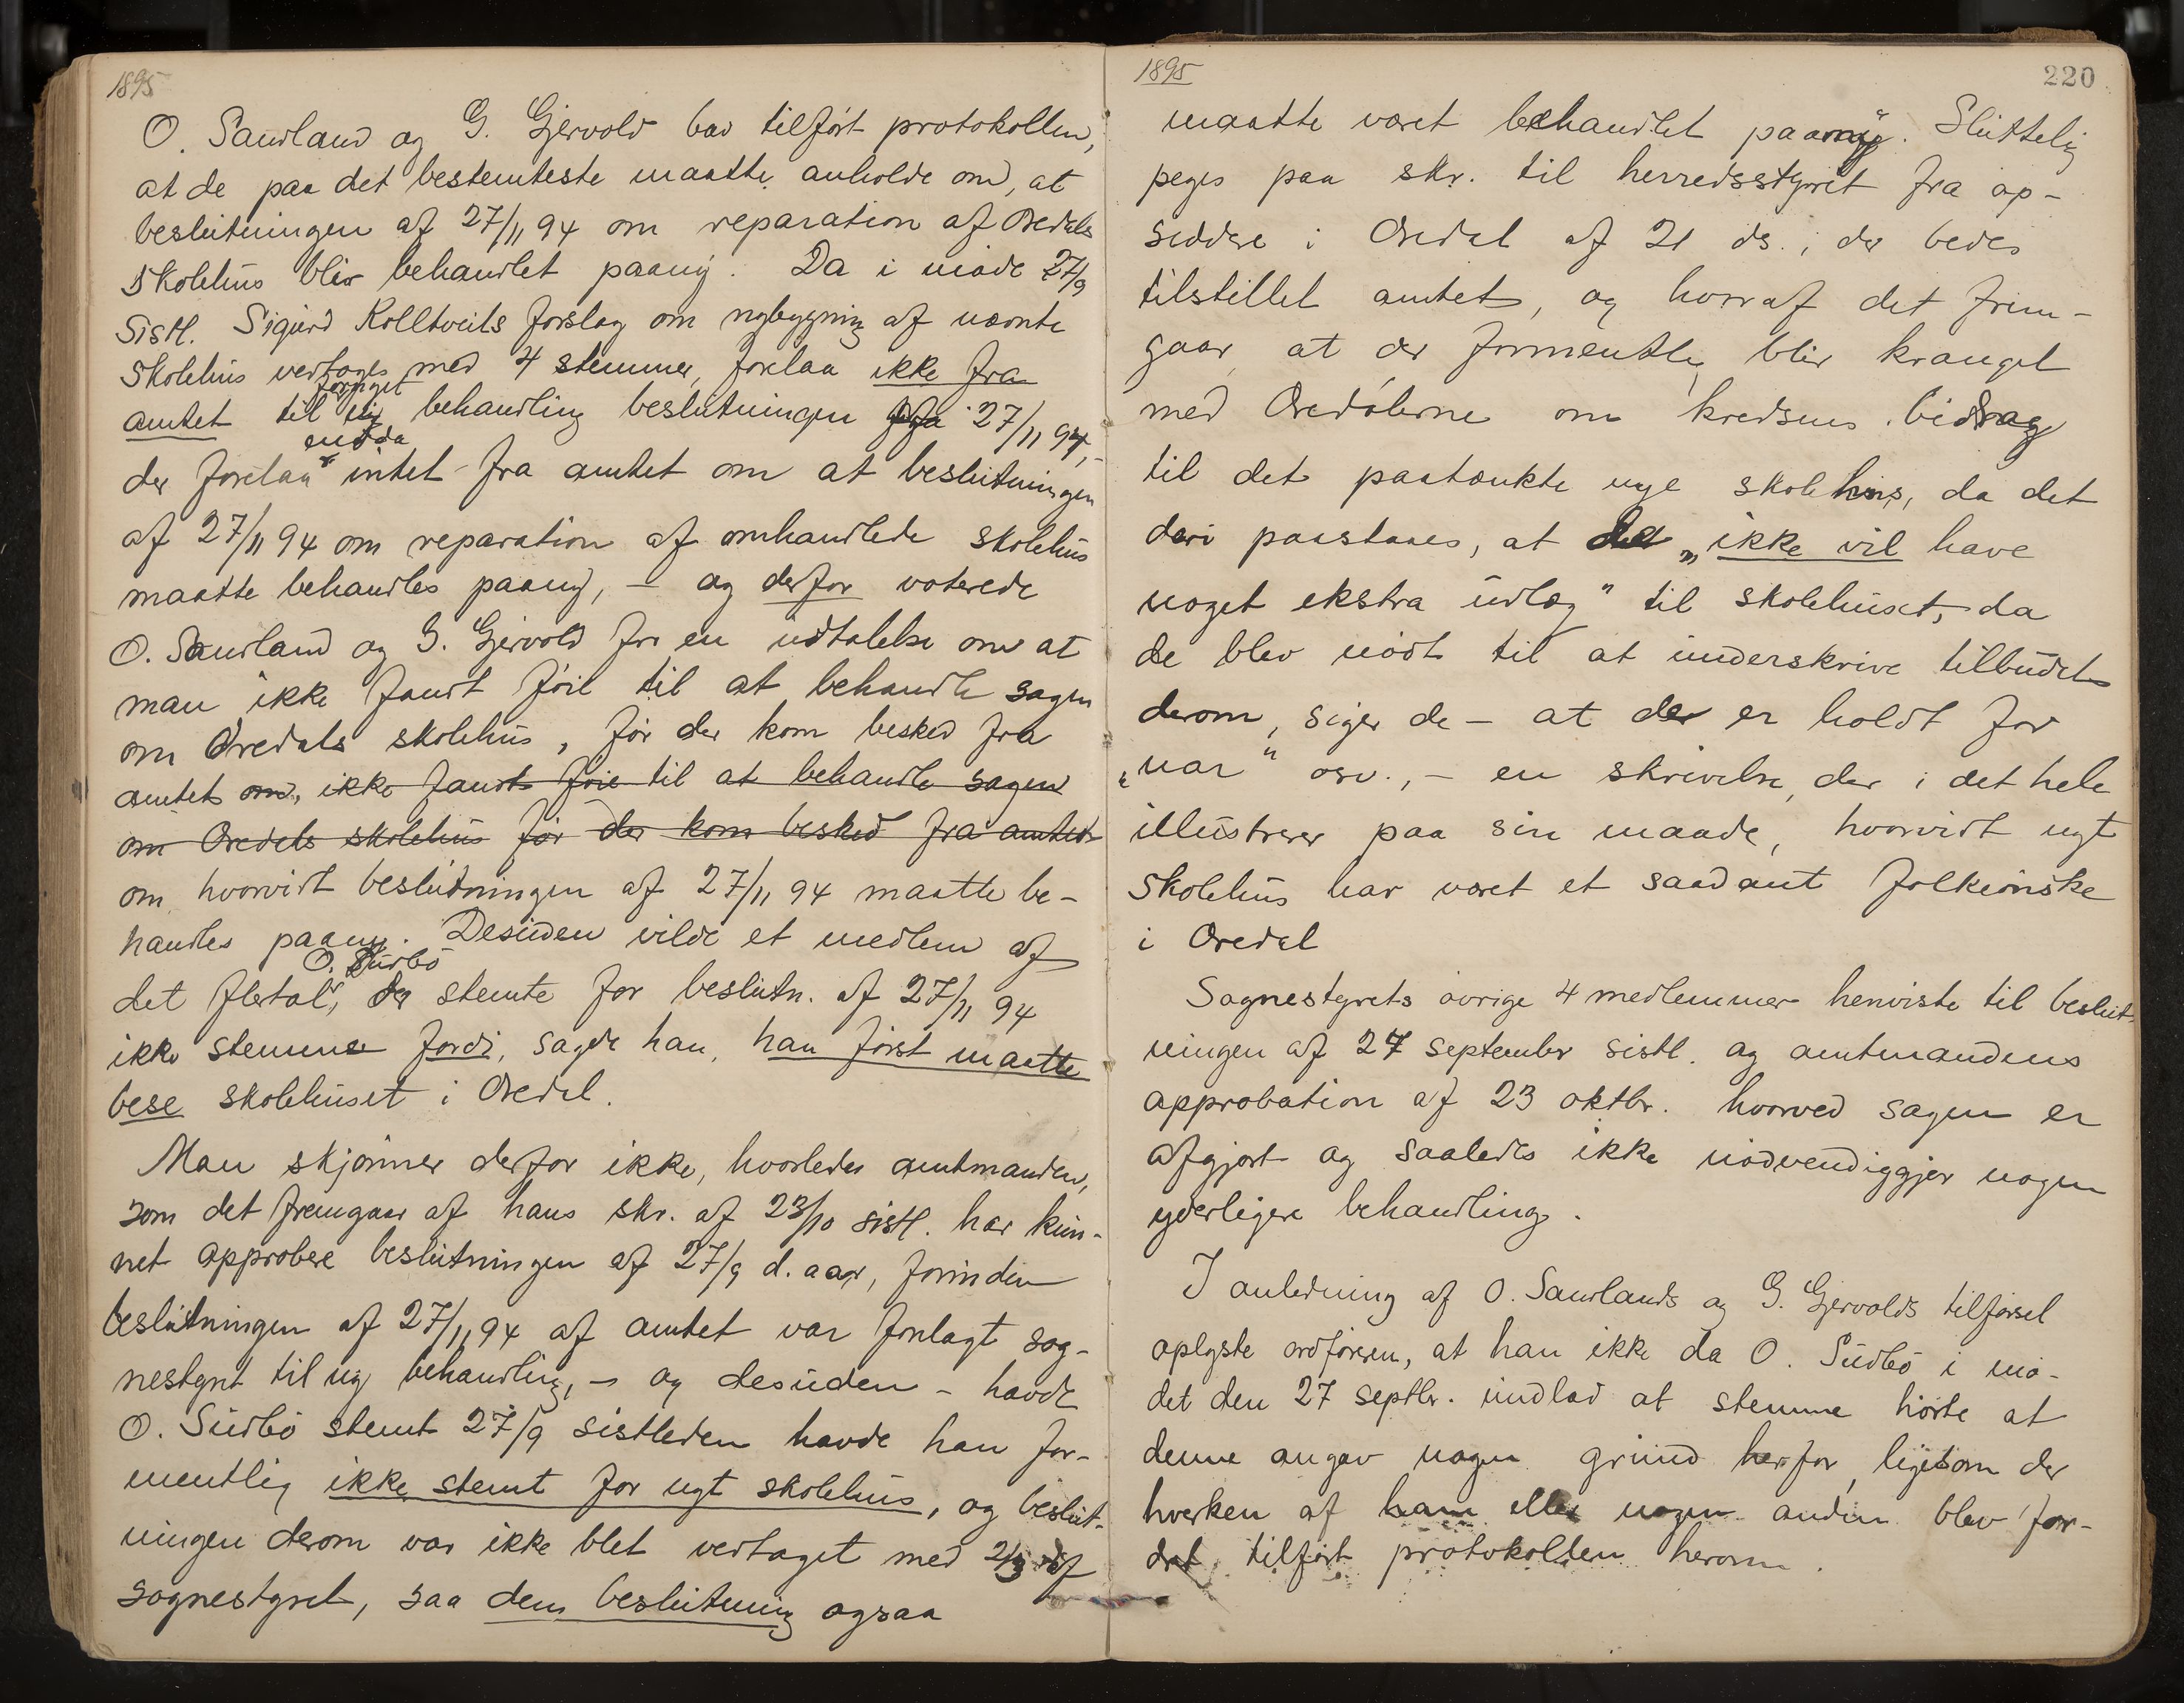 1895
O. Saurland og G. Gjervold bad tilført protokollen,
at de paa det bestemteste maatte anholde om, at
beslutningen af 27/11 94 om reparation af Oredals
skolehus blir behandlet paany. Da i møde 27/9
sistl. Sigurd Rolltveits forslag om nybygning af nævnte
skolehus vedtages med 4 stemmer, forelaa ikke fra
fornyet
amtet til ny behandling beslutningen 27/11 94,-
endda
der forelaa intet fra amtet om at beslutningen
af 27/11 94 om reparation af omhandlede skolehus
maatte behandles paany, – og derfor voterede
O. Saurland og G. Gjervold for en udtalelse om at
man ikke fandt føie til at behandle sagen
om Oredals skolehus, før der kom besked fra
amtet om, ikke fandt føie til at behandle sagen
om Oredals skolehus før der kom besked fra amtet
om hvorvidt beslutningen af 27/11 94 maatte be-
handles paany. Desuden vilde et medlem af
O. Sudbø
det flertal, der stemte for beslutn. af 27/11 94
ikke stemme fordi, sagde han, han først maatte
bese skolehuset i Oredal.
Man skjønner derfor ikke, hvorledes amtmanden,
som det fremgaar af hans skr. af 23/10 sistl. har kun-
net approbere beslutningen af 27/9 d. aar, forinden
beslutningen af 27/11 94 af amtet var forelagt sog-
nestyret til ny behandling, – og desuden – havde
O. Sudbø stemt 27/9 sistleden havde han for-
mentlig ikke stemt for nyt skolehus, og beslut-
ningen derom var ikke blet vedtaget med 2/3 af
sognestyret, saa den beslutning ogsaa
1895
220
maatte været behandlet paany". Sluttelig
peges paa skr. til herredsstyret fra op-
siddere i Oredal af 21 ds., der bedes
tilstillet amtet, og hvoraf det frem-
gaar, at der formentlig blir krangel
med Oredølerne om kredsens bidrag
til det paatænkte nye skolehus, da det
deri paastaaes, at de „ikke vil have
noget ekstra udlæg" til skolehuset, da
de blev nødt til at underskrive tilbudet
derom, siger de – at der er holdt for
„nar" osv., – en skrivelse, der i det hele
illustrerer paa sin maade, hvorvidt nyt
skolehus har været et saadant folkeønske
i Oredal
Sognestyrets øvrige 4 medlemmer henviste til beslut-
ningen af 27 september sistl. og amtmandens
approbation af 23 oktbr. hvorved sagen er
afgjort og saaledes ikke nødvendiggjør nogen
yderligere behandling.
I anledning af O. Saurlands og G. Gjervolds tilførsel
oplyste ordføreren, at han ikke da O. Sudbø i mø-
det den 27 septbr. undlod at stemme hørte at
denne angav nogen grund herfor, ligesom der
hverken af ham eller nogen anden blev for-
dret tilført protokollen herom.